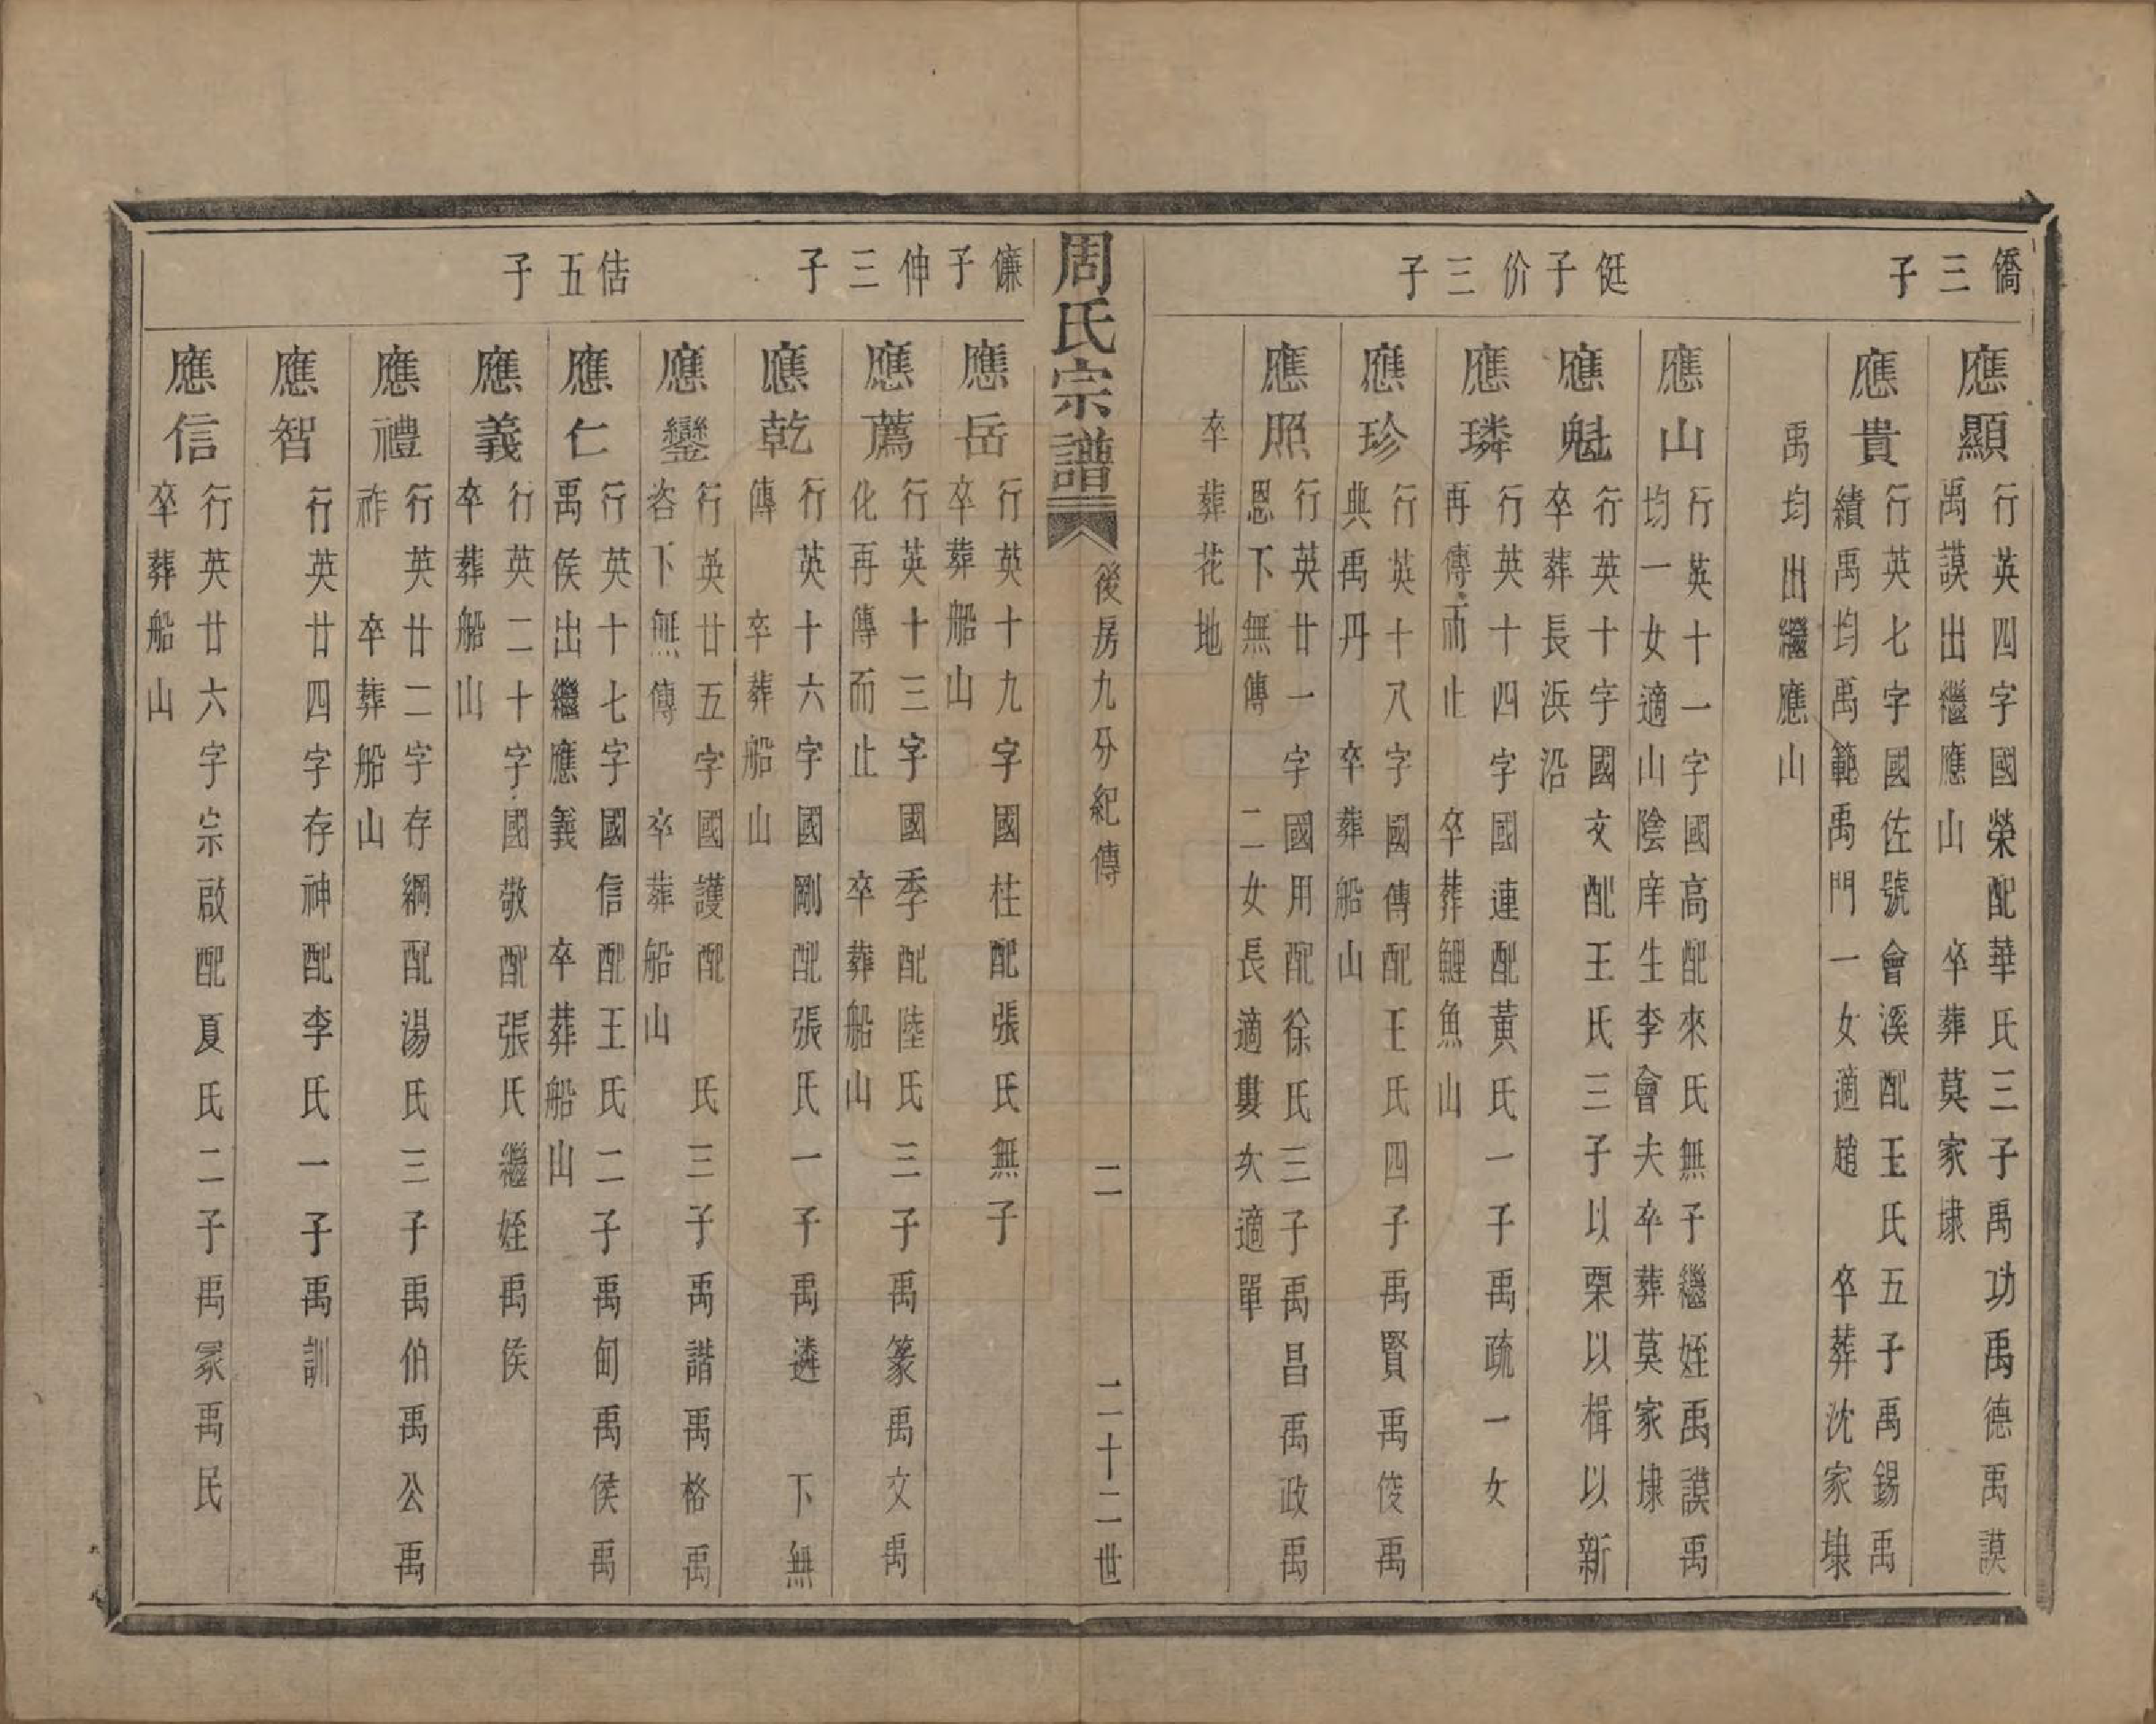 僑三子
應顯
行英四字國榮配華氏三子禹功禹德禹謨
禹謨出繼應山　卒葬莫家埭
應貴
行英七字國佐號會溪配王氏五子禹錫禹
績禹均禹範禹門一女適趙　卒葬沈家埭
禹均出繼應山
侹子价三子
應山
行英十一字國高配來氏無子繼姪禹謨禹
均一女適山陰庠生李會夫卒葬莫家埭
應魁
行英十字國文配王氏三子以栗以楫以新
卒葬長浜沿
應璘
行英十四字國連配黃氏一子禹疏一女
再傳而止　卒葬鯉魚山
應珍
行英十八字國傳配王氏四子禹賢禹俊禹
典禹丹　卒葬船山
應照
行英廿一字國用配徐氏三子禹昌禹政禹
恩下無傳　二女長適婁次適單
卒葬花地
周氏宗譜
後房九分紀傳　二　二十二世
傔子伸三子
應岳
行英十九字國柱配張氏無子
卒葬船山
應薦
行英十三字國季配陸氏三子禹篆禹文禹
化再傳而止　卒葬船山
應乾
行英十六字國剛配張氏一子禹遴　下無
傳　卒葬船山
應鑾
行英廿五字國護配　氏三子禹諧禹格禹
咨下無傳　卒葬船山
佶五子
應仁
行英十七字國信配王氏二子禹甸禹侯禹
侯出繼應義　卒葬船山
應義
行英二十字國敬配張氏繼姪禹侯
卒葬船山
應禮
行英廿二字存綱配湯氏三子禹伯禹公禹
祚　卒葬船山
應智
行英廿四字存神配李氏一子禹訓
應信
行英廿六字宗啟配夏氏二子禹冢禹民
卒葬船山